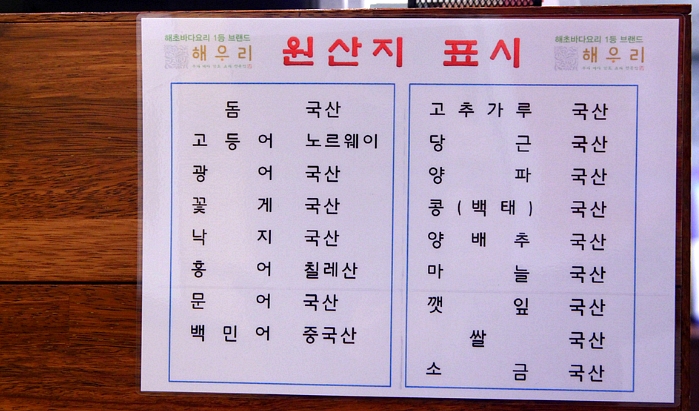 해초바다요리 1등 브랜드
해우리
원산지 표시
해초바다요리 1등 브랜드
해우리
돔 국산
고등어 노르웨이
광어 국산
꽃게 국산
낙지 국산
홍어 칠레산
문어 국산
백민어 중국산
고추가루 국산
당근 국산
양파 국산
콩(백태) 국산
양배추 국산
마늘 국산
깻잎 국산
쌀 국산
소금 국산